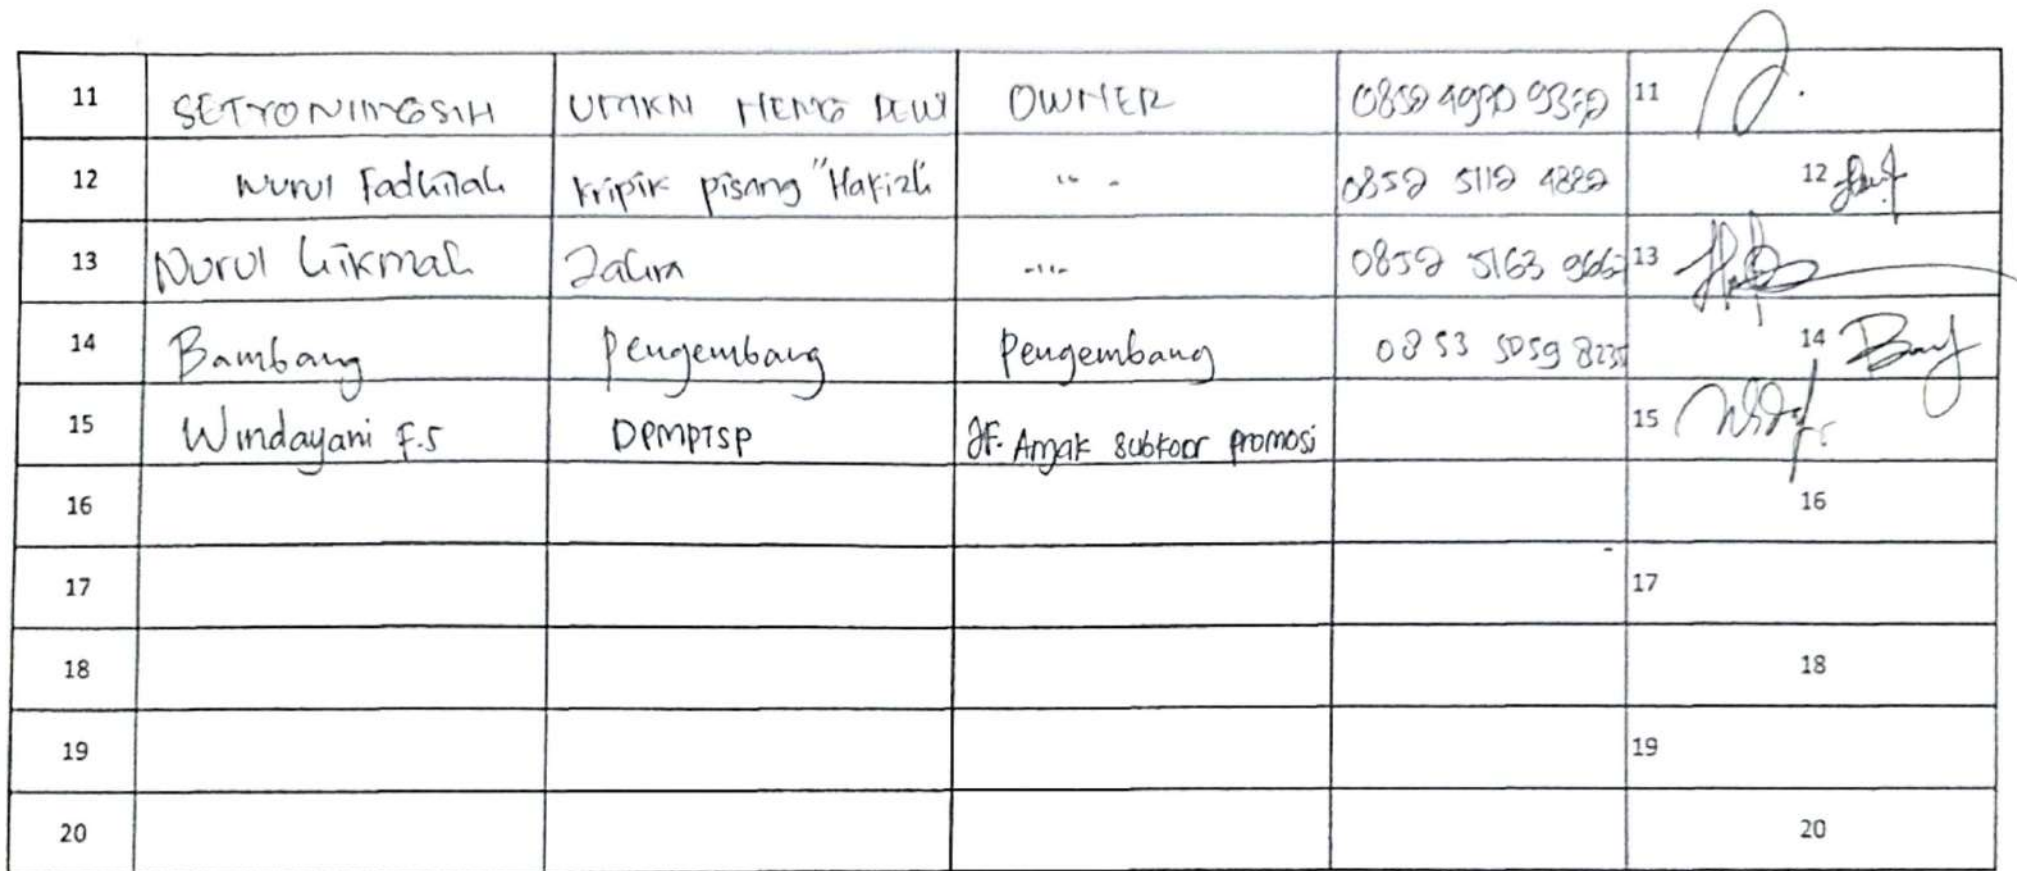 11 SETYONINGSIH UMKM MENG DEWI OWNER 0852 4970 9372 11
12 Nurul Fadhilah Kripik pisang "Hafizh" " 0852 5112 4882 12
13 Nurul Hikmah Zahra " 0852 5163 966 13
14 Bambang Pengembang Pengembang 0853 5059 8235 14
15 Windayani F.S DPMPTSP JF. Amak subkoor promosi 15
16 16
17 17
18 18
19 19
20 20